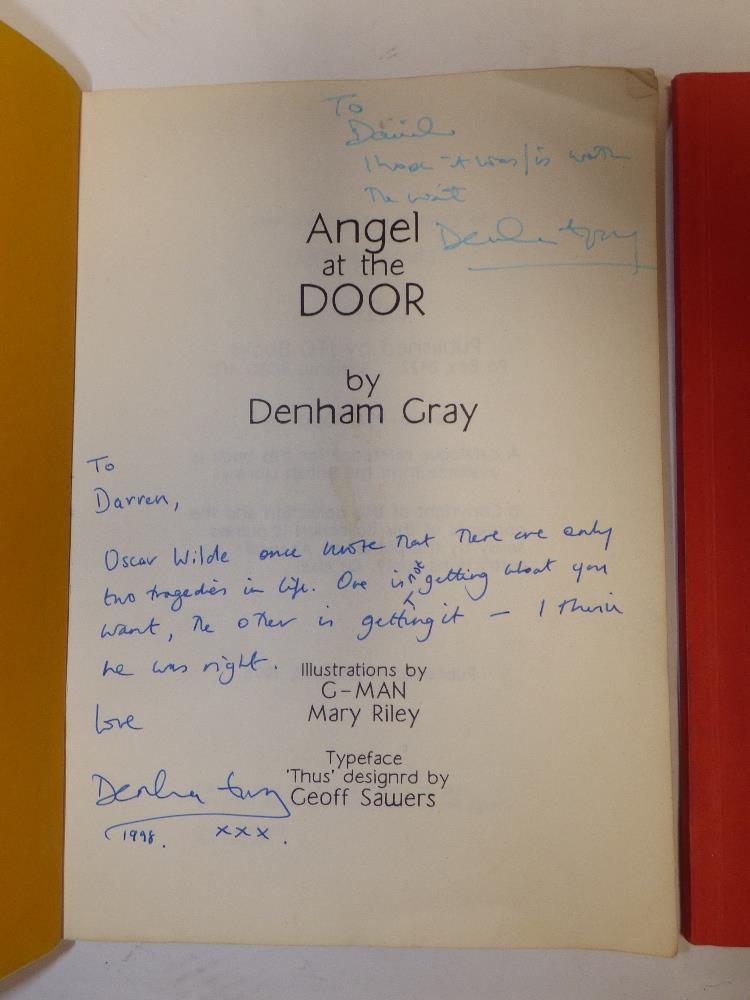 To
I hope it was/is worth
The wait
Denham Gray
Angel
at the
DOOR
by
Denham Gray
To
Darren,
Oscar Wilde once wrote that There are only
two tragedies in life. One is not getting what you
want, The other is getting it – I think
he was right.
Illustrations by
G-MAN
Mary Riley
Love
Typeface
'Thus' designrd by
Geoff Sawers
Denham Gray
1998. xxx.